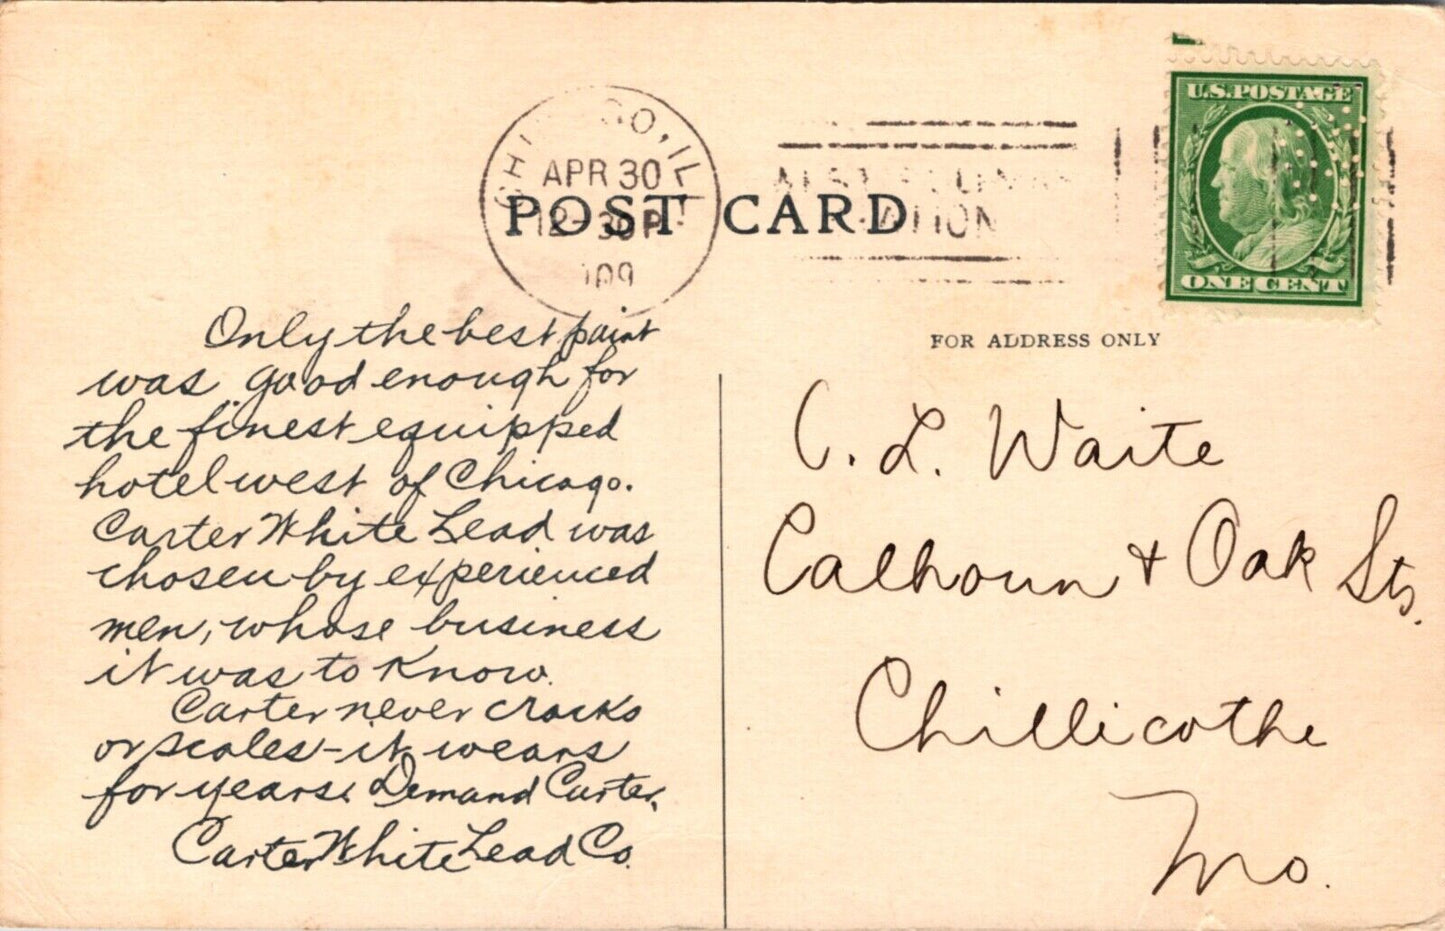 U.S. POSTAGE
CHICAGO, ILL.
APR 30
12-30P
POST CARD
ONE CENT
FOR ADDRESS ONLY
Only the best paint
was good enough for
the finest equipped
hotel west of Chicago.
Carter White Lead was
chosen by experienced
men, whose business
it was to know.
Carter never cracks
or scales - it wears
for years. Demand Carter.
Carter White Lead Co.
C. L. Waite
Calhoun + Oak Sts.
Chillicothe
Mo.